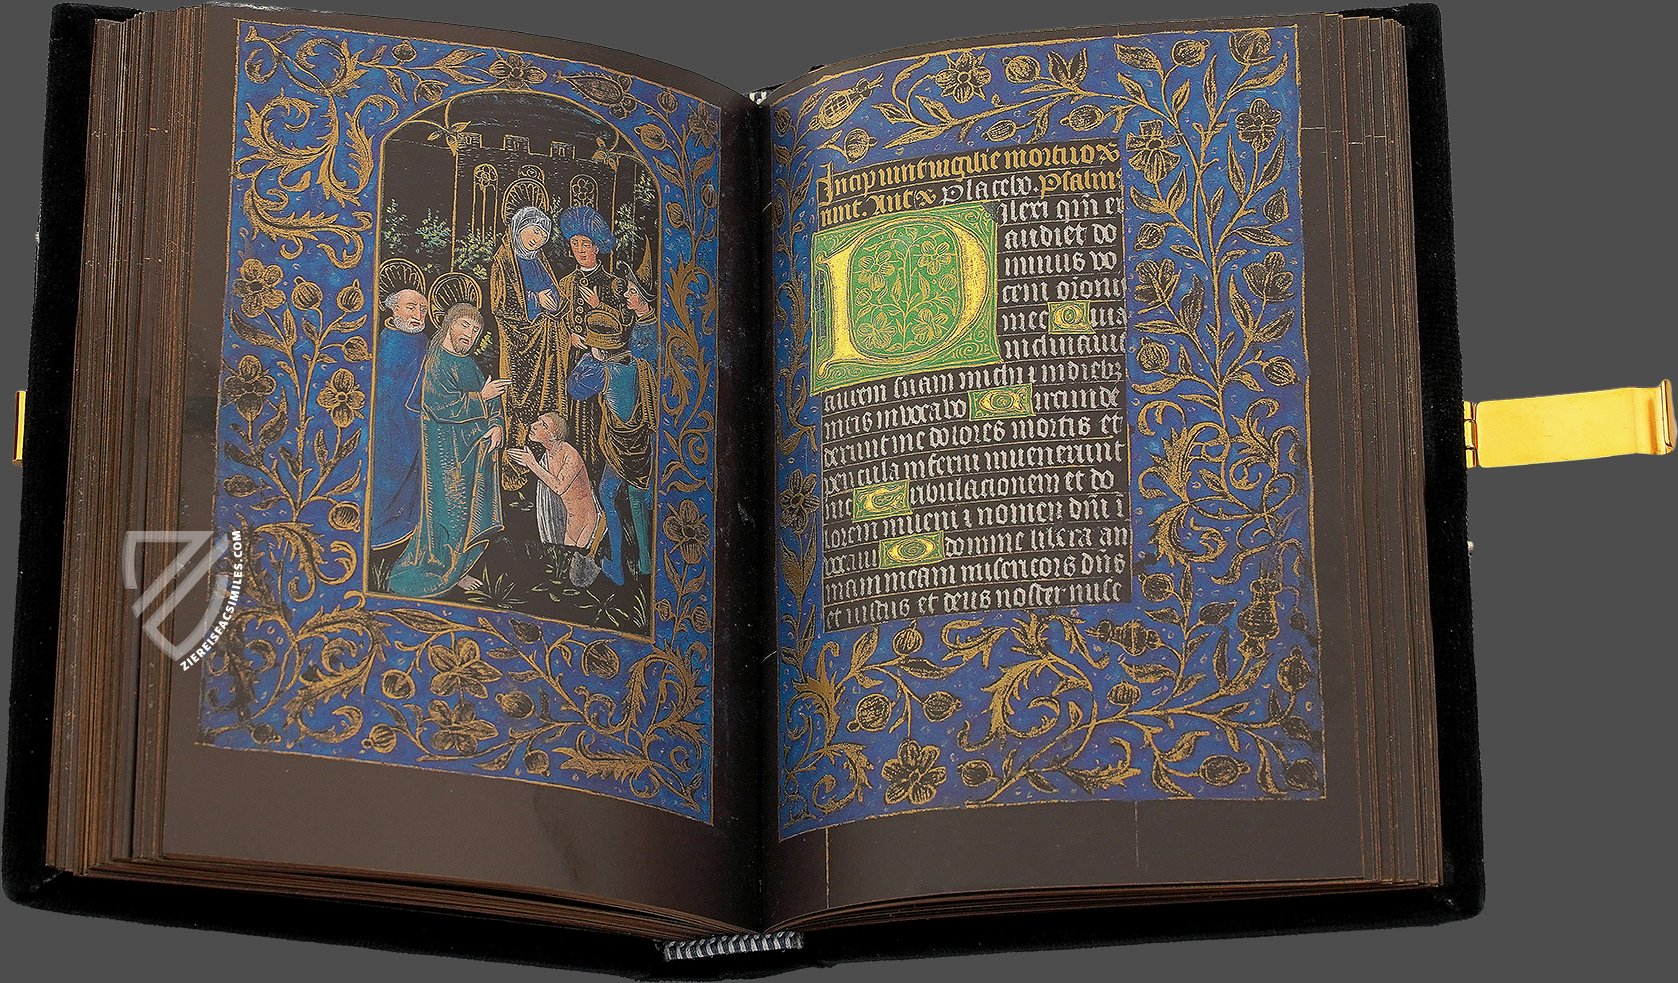 ZIEREISFACSIMILES.COM
Incipiunt vigilie mortuoꝝ
Placebo. Psalmꝰ
Dilexi qm̄ ex
audiet do
minus vo
cem orōnis
mee Quia
inclinauit
aurem suam michi ⁊ in diebꝫ
meis inuocabo Circumde
derunt me dolores mortis et
pericula inferni inuenerunt
me Tribulationem et do
lorem inueni ⁊ nomen dn̄i ī
uocaui O domine libera an
imam meam misericors dn̄s
et iustus et deus noster mise